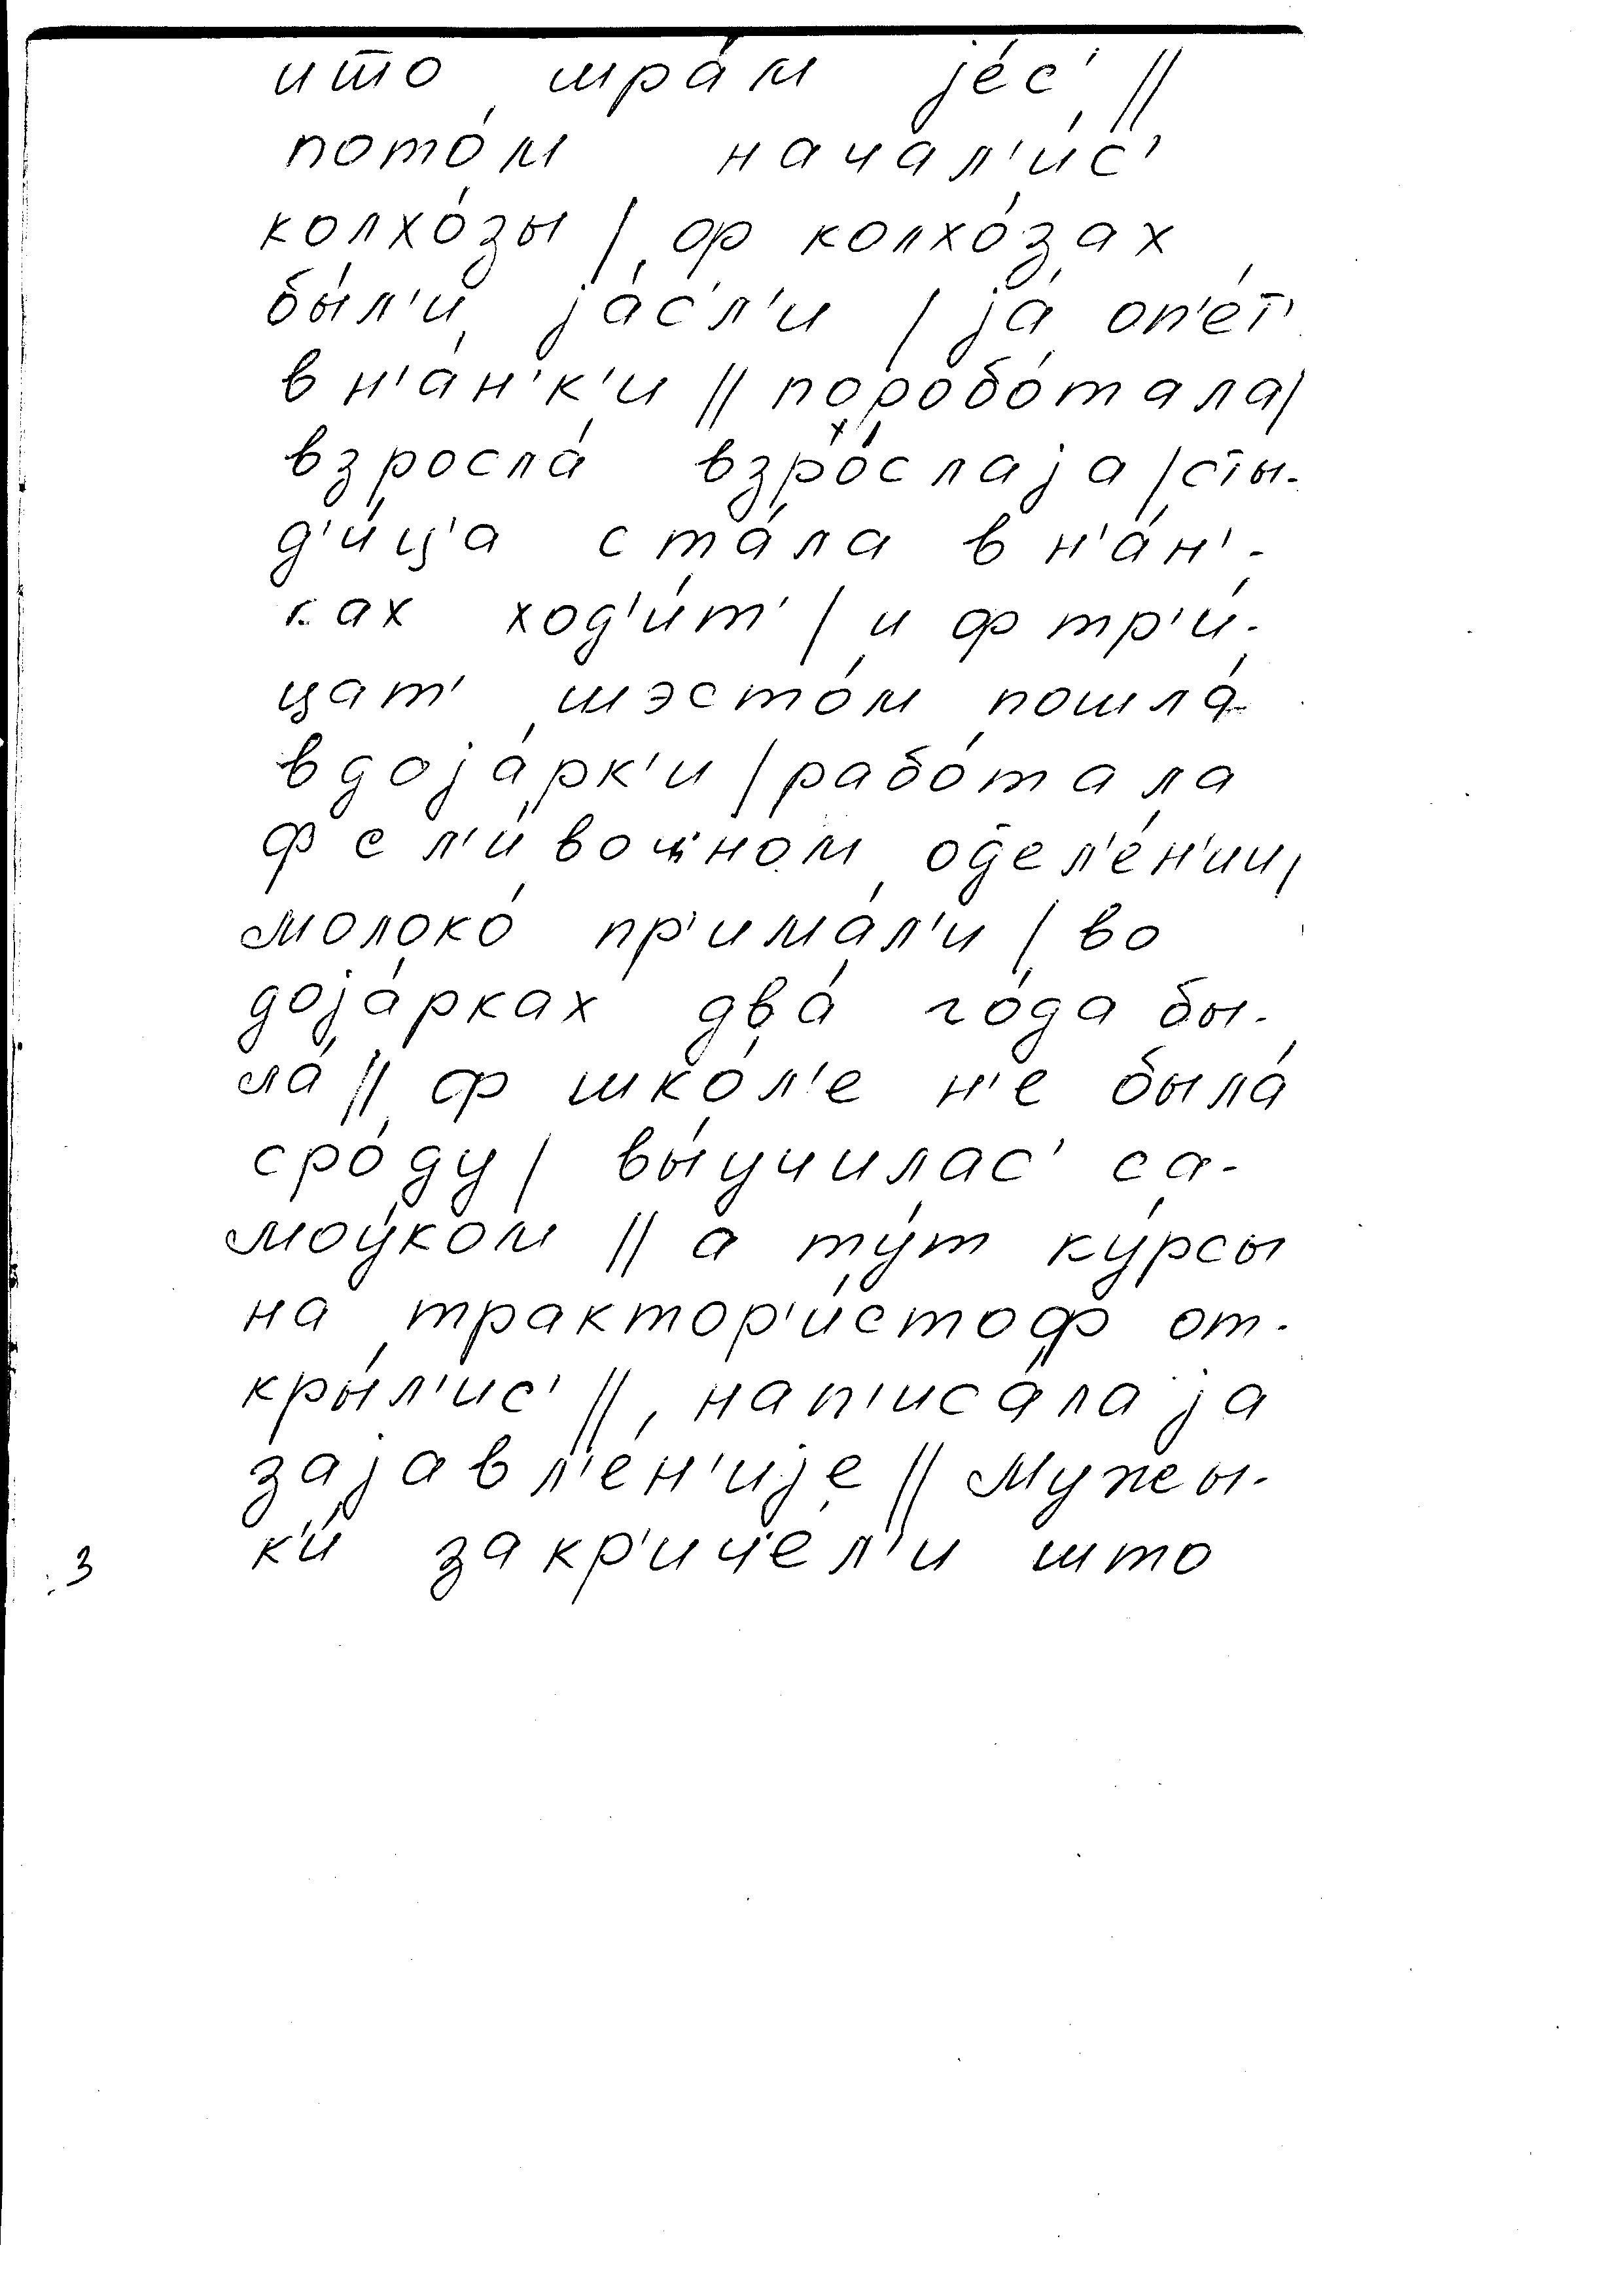 што шра́м је́с' ||
пото́м начал'и́с'
колхо́зы | ф колхо́зах
бы́л'и ја́с'л'и | ја́ оп'е́т'
в н'а́н'к'и || поробо́тала |
взросла́ взро́слаја | сты-
д'и́ц'а ста́ла в н'а́н'-
ках ход'и́т' | и ф тр'и́-
цат' шэсто́м пошла́
в доја́рк'и | рабо́тала
ф с л'и́вочном оᴅел'е́н'ии |
молоко́ пр'има́л'и | во
доја́рках два́ го́да бы-
ла́ || ф шко́л'е н'е была́
сро́ду | вы́училас' са-
моу́ком || а ту́т ку́рсы
на трактор'и́стоф от-
кры́л'ис' || нап'иса́ла ја
зајавл'е́н'ије || Мужы-
к'и́ закр'иче́л'и што
3